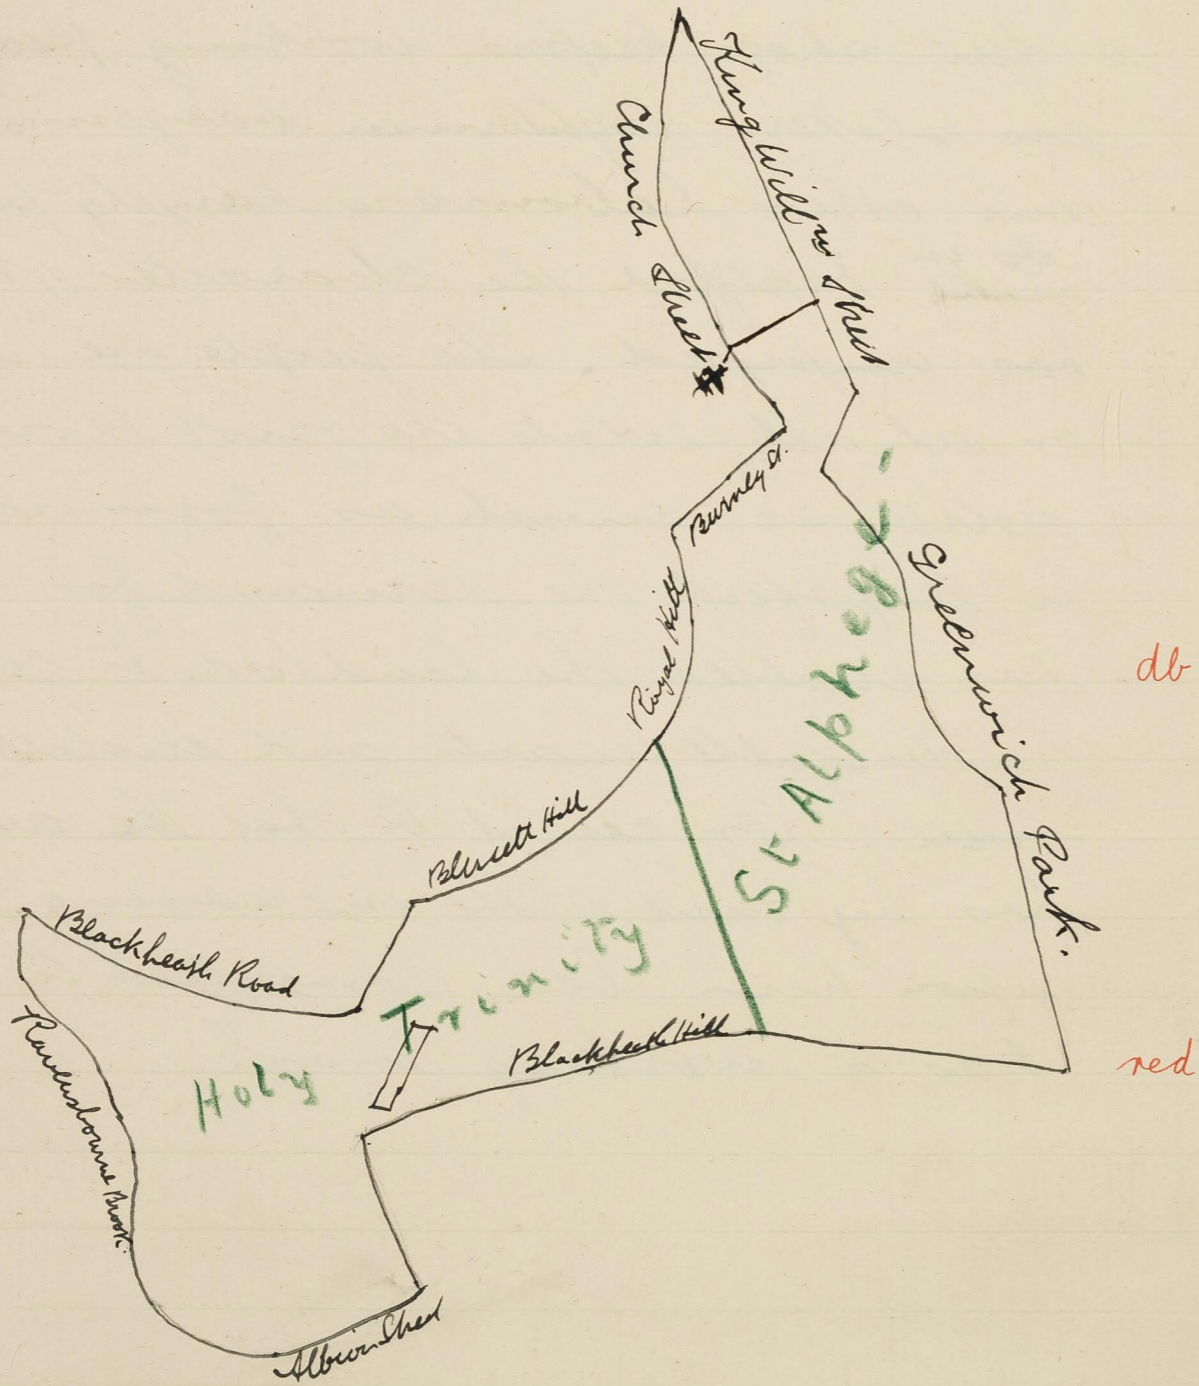 King Willm Street
Church Street
Burney St.
Royal Hill
Greenwich Park.
St Alphege
db
Blissett Hill
Blackheath Road
Holy Trinity
Blackheath Hill
red
Ravensbourne Brook.
Albion Street